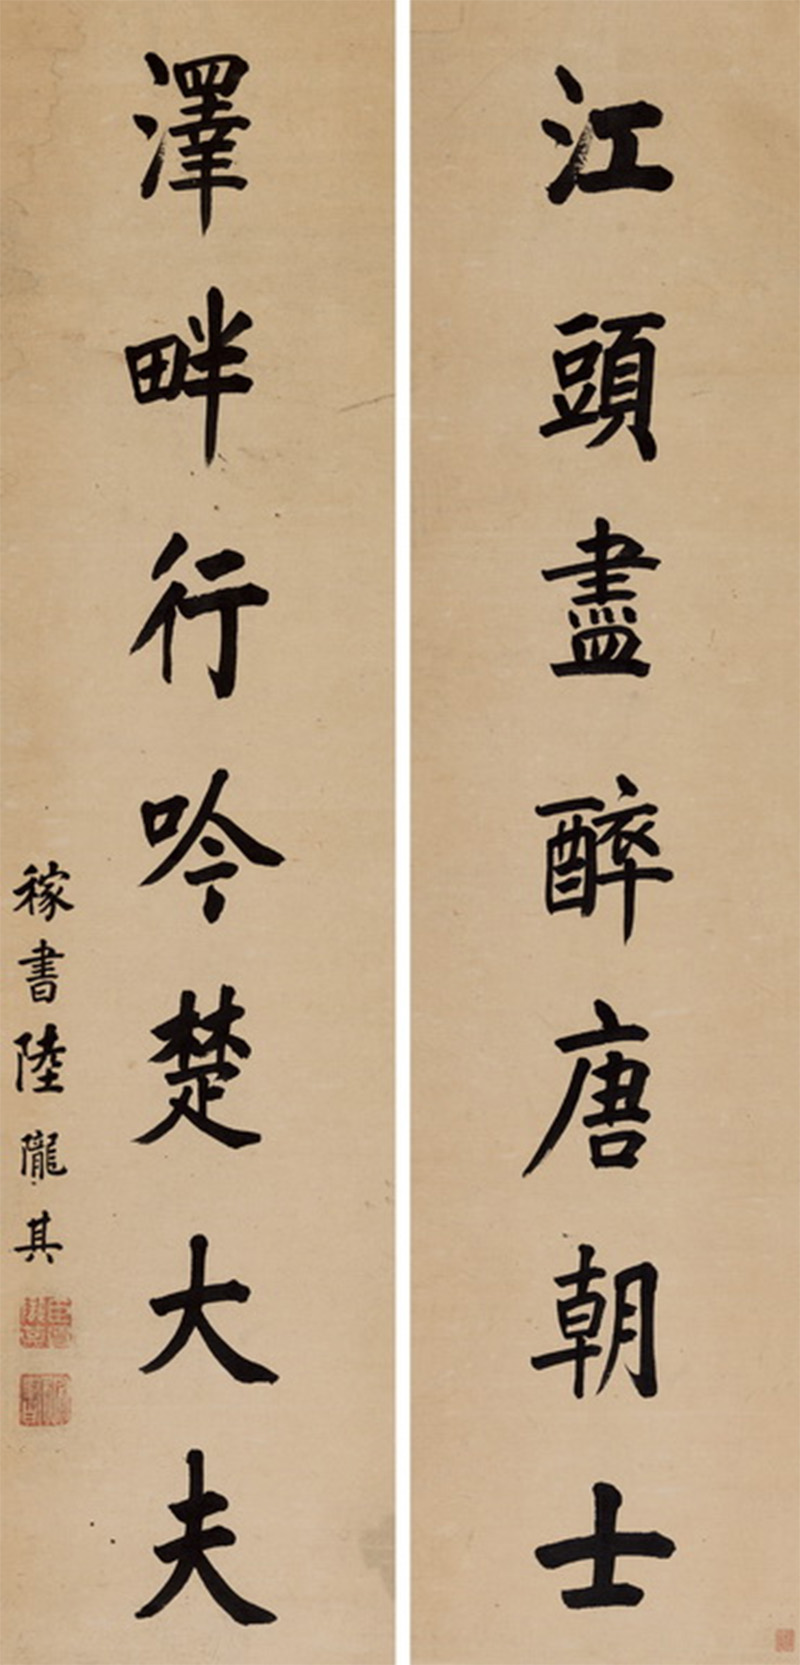 江頭盡醉唐朝士
澤畔行吟楚大夫
稼書陸隴其